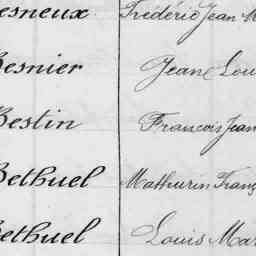 esneux Frédéric Jean M
Besnier Jean Lou
Bestin Francois Jean
Bethuel Mathurin Franç
Bethuel Louis Mar